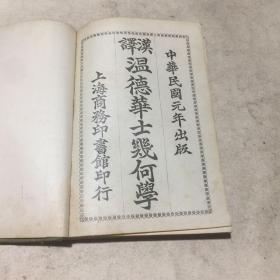 中華民國元年出版
漢譯
溫德華士幾何學
上海商務印書館印行